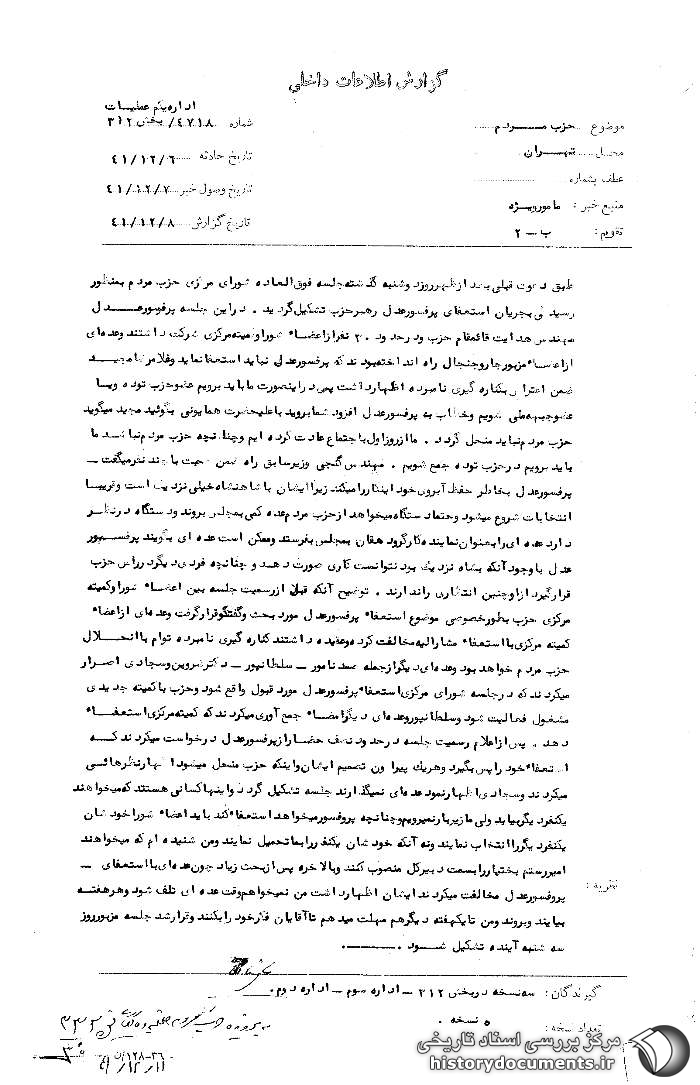 گزارش اطلاعات داخلی
اداره یکم عملیات
موضوع حزب مردم
شماره ۴۷۱۸/ بخش ۳۱۲
محل تهران
تاریخ حادثه ۴۱/۱۲/۶
عطف بشماره
تاریخ وصول خبر ۴۱/۱۲/۷
منبع خبر : مامور ویژه
تاریخ گزارش ۴۱/۱۲/۸
تقویم : ب - ۲
طبق دعوت قبلی بعد از ظهر روز دوشنبه گذشته جلسه فوق العاده شورای مرکزی حزب مردم بمنظور
رسیدگی بجریان استعفای پرفسور عدل رهبر حزب تشکیل گردید . در این جلسه پرفسور عدل
مهندس هدایت قائممقام حزب و در حدود ۳۰ نفر از اعضاء شورا و کمیته مرکزی شرکت داشتند وعده ای
از اعضاء مزبور جار و جنجال راه انداخته بودند که پرفسور عدل نباید استعفا نماید و غلامرضا مجید
ضمن اعتراض بکناره گیری نامبرده اظهار داشت پس در اینصورت ما باید برویم عضو حزب توده ویا
عضو جبهه ملی شویم و خطاب به پرفسور عدل افزود شما بروید باعلیحضرت همایونی بگوئید مجید میگوید
حزب مردم نباید منحل گردد . ما از روز اول باجتماع عادت کرده ایم و چنانچه حزب مردم نباشد ما
باید برویم در حزب توده جمع شویم . مهندس گنجی وزیر سابق راه ضمن صحبت با چند نفر میگفت -
پرفسور عدل بخاطر حفظ آبروی خود اینکار را میکند زیرا ایشان با شاهنشاه خیلی نزدیک است و قریبا
انتخابات شروع میشود و حتما دستگاه میخواهد از حزب مردم عده کمی بمجلس بروند و دستگاه در نظر
دارد عده ای را بعنوان نماینده کارگر و دهقان بمجلس بفرستد و ممکن است عده ای بگویند پرفسور
عدل با وجود آنکه بشاه نزدیک بود نتوانست کاری صورت دهد و چنانچه فرد دیگر در راس حزب
قرار گیرد از او چنین انتظاری را ندارند . توضیح آنکه قبل از رسمیت جلسه بین اعضاء شورا و کمیته
مرکزی حزب بطور خصوصی موضوع استعفاء پرفسور عدل مورد بحث و گفتگو قرار گرفت وعده ای از اعضاء
کمیته مرکزی با استعفاء مشارالیه مخالفت کرده و عقیده داشتند کناره گیری نامبرده توام با انحلال
حزب مردم خواهد بود وعده ای دیگر از جمله صمد نامور - سلطانپور - دکتر شروین و سجادی اصرار
میکردند که در جلسه شورای مرکزی استعفاء پرفسور عدل مورد قبول واقع شود و حزب با کمیته جدیدی
مشغول فعالیت شود و سلطانپور وعده ای دیگر امضاء جمع آوری میکردند که کمیته مرکزی استعفاء
دهد . پس از اعلام رسمیت جلسه در حدود نصف حضار از پرفسور عدل درخواست میکردند که
استعفاء خود را پس بگیرد و هریک پیرامون تصمیم ایشان و اینکه حزب منحل میشود اظهار نظرهائی
میکردند و سجادی اظهار نمود عده ای نمیگذارند جلسه تشکیل گردد و اینها کسانی هستند که میخواهند
یکنفر دیگر بیاید ولی ما زیر بار نمیرویم و چنانچه پروفسور میخواهد استعفاء کند باید اعضاء شورا خودشان
یکنفر دیگر را انتخاب نمایند و نه آنکه خودشان یکنفر را بما تحمیل نمایند و من شنیده ام که میخواهند
امیر رستم بختیار را بسمت دبیرکل منصوب کنند و بالاخره پس از بحث زیاد چون عده ای با استعفای -
پروفسور عدل مخالفت میکردند ایشان اظهار داشت من نمیخواهم وقت عده ای تلف شود و هر هفته
بیایند و بروند و من تا یکهفته دیگر هم مهلت میدهم تا آقایان فکر خود را بکنند و قرار شد جلسه مزبور روز
سه شنبه آینده تشکیل شود .
نظریه :
گیرندگان : سه نسخه در بخش ۳۱۲ - اداره سوم - اداره دوم .
تعداد نسخه : ۵ نسخه .
مرکز بررسی اسناد تاریخی
historydocuments.ir